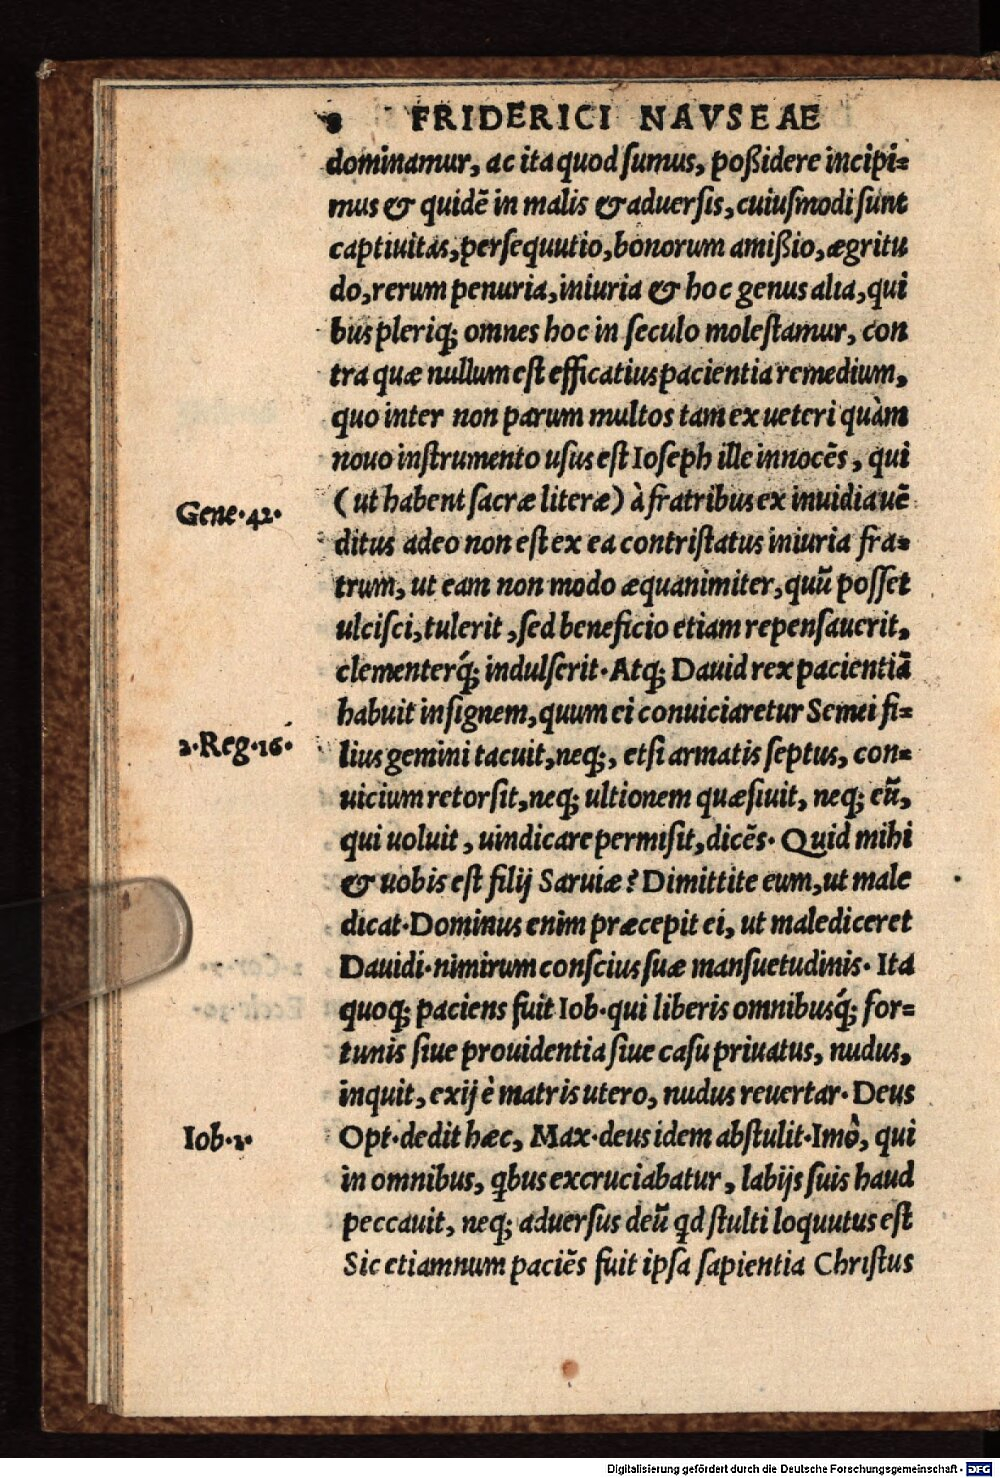 8 FRIDERICI NAVSEAE
dominamur, ac ita quod ſumus, poßidere incipi⸗
mus & quidē in malis & aduerſis, cuiuſmodi ſunt
captiuitas, perſequutio, bonorum amißio, ægritu
do, rerum penuria, iniuria & hoc genus alia, qui
bus pleriq; omnes hoc in ſeculo moleſtamur, con
tra quæ nullum eſt efficatius pacientia remedium,
quo inter non parum multos tam ex ueteri quàm
nouo inſtrumento uſus eſt Ioſeph ille innocēs, qui
Gene·42· ( ut habent ſacræ literæ ) à fratribus ex inuidia uē
ditus adeo non eſt ex ea contriſtatus iniuria fra⸗
trum, ut eam non modo æquanimiter, quū poſſet
ulciſci, tulerit, ſed beneficio etiam repenſauerit,
clementerq́; indulſerit· Atq; Dauid rex pacientiā
habuit inſignem, quum ei conuiciaretur Semei fi⸗
2·Reg·16· lius gemini tacuit, neq;, etſi armatis ſeptus, con⸗
uicium retorſit, neq; ultionem quæſiuit, neq; eū,
qui uoluit, uindicare permiſit, dicēs· Quid mihi
& uobis eſt filij Saruiæ? Dimittite eum, ut male
dicat· Dominus enim præcepit ei, ut malediceret
Dauidi· nimirum conſcius ſuæ manſuetudinis· Ita
quoq; paciens fuit Iob· qui liberis omnibusq́; for⸗
tunis ſiue prouidentia ſiue caſu priuatus, nudus,
inquit, exij è matris utero, nudus reuertar· Deus
Iob·1· Opt· dedit hæc, Max· deus idem abſtulit· Imò, qui
in omnibus, qbus excruciabatur, labijs ſuis haud
peccauit, neq; aduerſus deū qd ſtulti loquutus eſt
Sic etiamnum paciēs fuit ipſa ſapientia Chriſtus
Digitalisierung gefördert durch die Deutsche Forschungsgemeinschaft - DFG